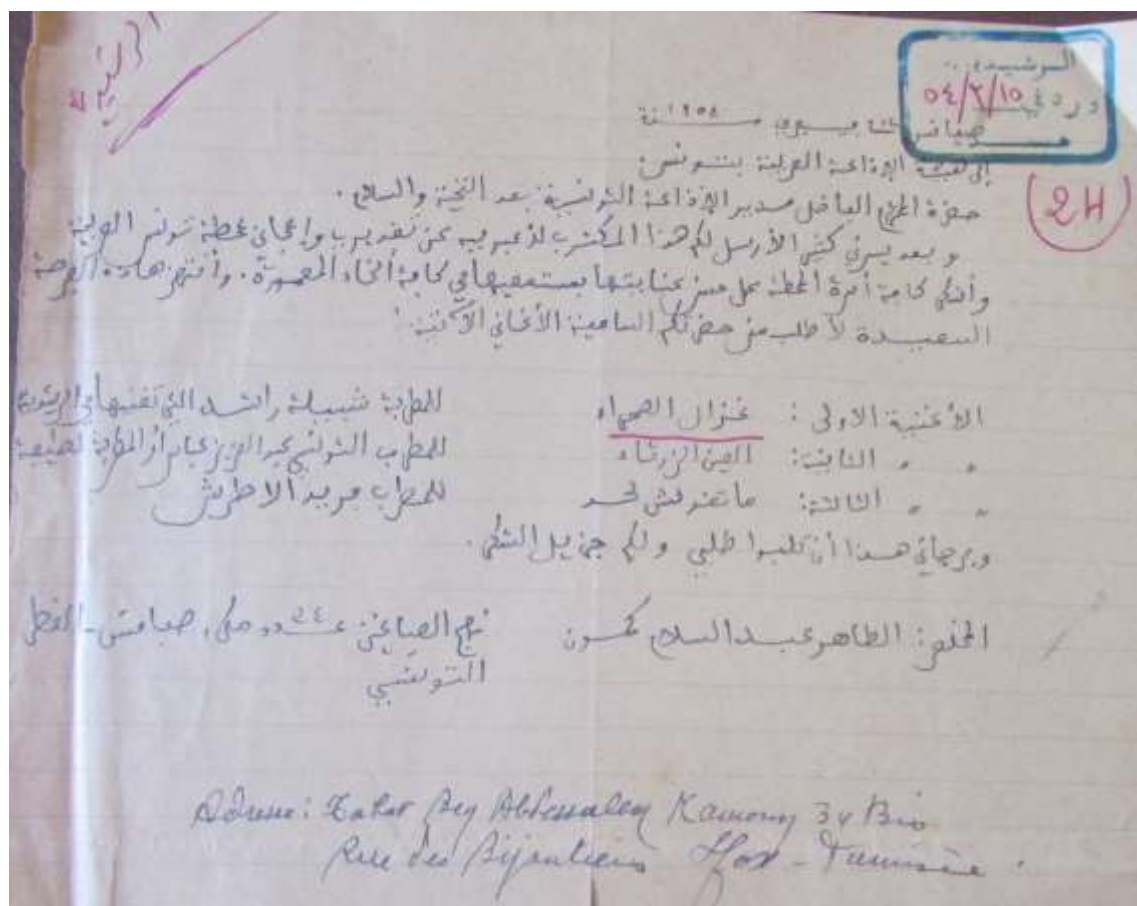 الرشيدية
ورد في ٥٤/٢/١٥
صفاقس في سنة ١٩٥٤
(2H)
إلى هيئة الإذاعة العربية بتونس
حضرة المحترم الفاضل مدير الإذاعة التونسية بعد التحية والسلام .
و بعد يسرني كثيرا لأرسل لكم هذا المكتوب لأعبر فيه عن تقديري وإعجابي بمحطة تونس العربية
وأشكر كامل أسرة المحطة على عنايتها بمستمعيها في كافة أنحاء المعمورة . وأنتهز هذه الفرصة
السعيدة لأطلب من حضرتكم السامية الأغاني الآتية :
الأغنية الأولى : غزال الصحراء للمطربة شبيلة راشد التي تغنيها
" " الثانية: العين الزرقاء للمطرب التونسي عبد العزيز أو المطربة لطيفة
" " الثالثة: ما تقولش لحد للمطرب فريد الاطرش
وبرجائي هذا أن تلبوا طلبي ولكم جزيل الشكر .
المخلص: الطاهر عبد السلام كمون نهج الصباغين عدد ٣٤ مكرر صفاقس - القطر
التونسي
Adresse: Tahar Ben Abdessalem Kamoun 34 Bis
Rue des Bijoutiers Sfax - Tunisie .